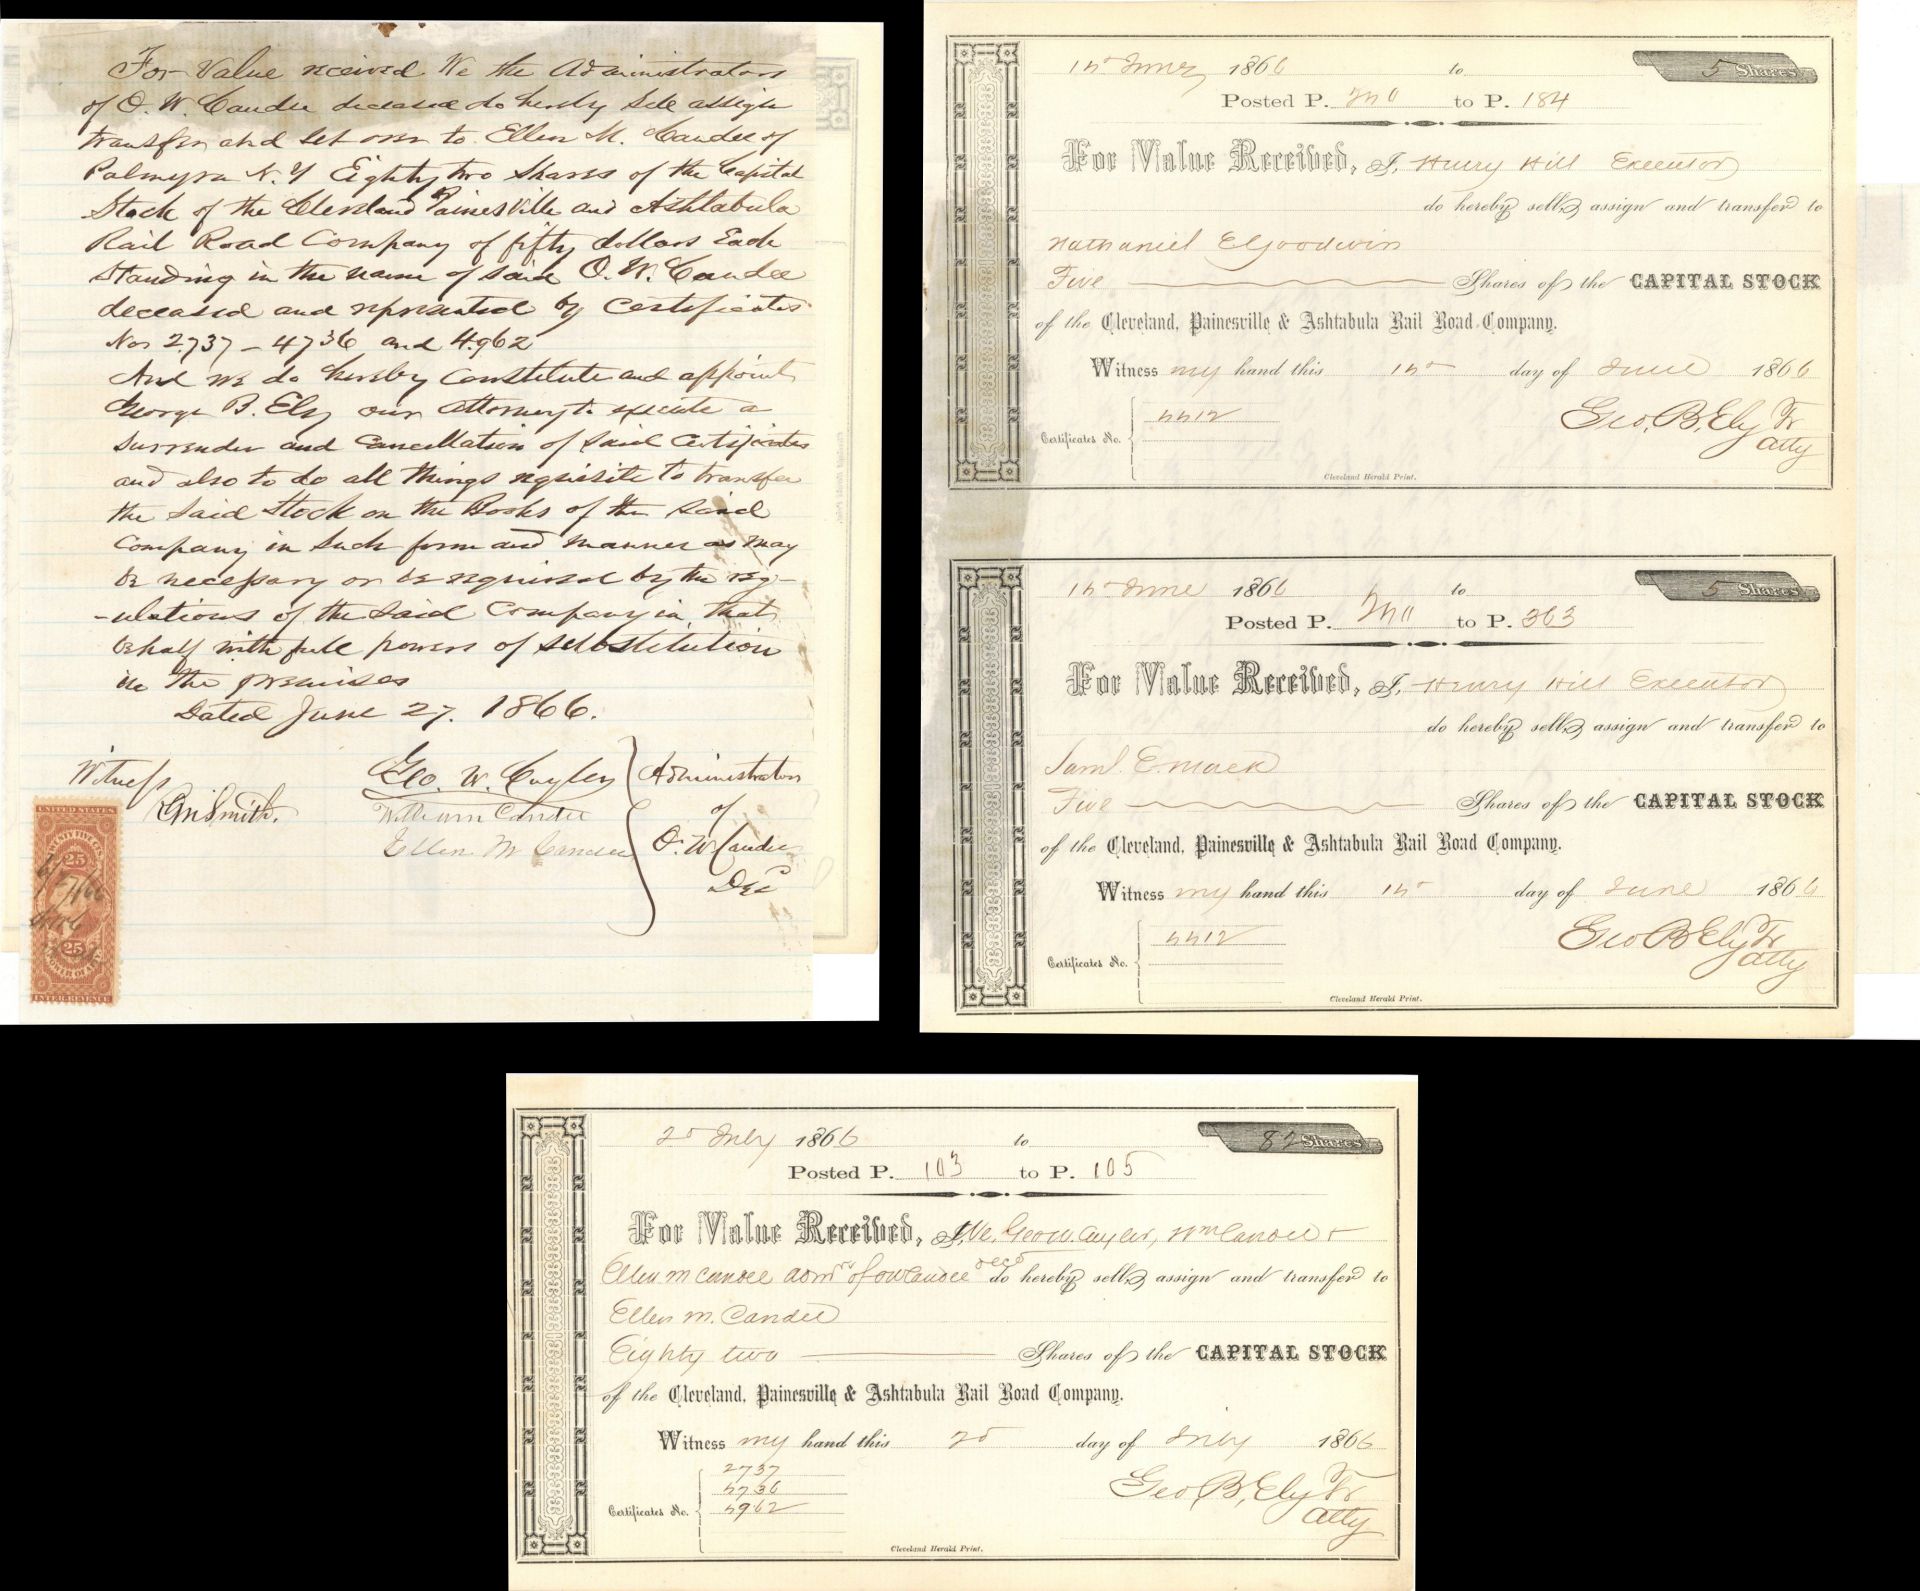 For Value received We the Administrators
of O. W. Candee deceased do hereby Sell assign
transfer and set over to Ellen M. Candee of
Palmyra N. Y Eighty two Shares of the Capital
Stock of the Cleveland Painesville and Ashtabula
Rail Road Company of fifty dollars Each
Standing in the name of said O. W. Candee
deceased and represented by Certificates
Nos 2.737 - 4736 and 4.962
And we do hereby Constitute and appoint
George B. Ely our Attorney to execute a
Surrender and Cancellation of Said Certificates
and also to do all things requisite to transfer
the Said Stock on the Books of the Said
Company in Such form and manner as may
be necessary or be required by the reg-
-ulations of the Said Company in that
behalf with full powers of substitution
in the premises
Dated June 27. 1866.
Witness
Geo. W. Cuyler
William Candee
Ellen M Candee
Administrators
of
O. W Candee
Decd
UNITED STATES
25
6/27/66
25
INTER. REVENUE
1866 to 5 Shares
Posted P. to P. 184
For Value Received, I, Henry Hill Executor
do hereby sell, assign and transfer to
Nathaniel E Goodwin
Five Shares of the CAPITAL STOCK
of the Cleveland, Painesville & Ashtabula Rail Road Company.
Witness my hand this day of June 1866
Certificates No. 4412
Geo. B. Ely Jr
Atty
Cleveland Herald Print.
June 1866 to 5 Shares
Posted P. to P. 363
For Value Received, I, Henry Hill Executor
do hereby sell, assign and transfer to
Saml. E. Mack
Five Shares of the CAPITAL STOCK
of the Cleveland, Painesville & Ashtabula Rail Road Company.
Witness my hand this day of June 1866
Certificates No. 4412
Geo B Ely Jr
Atty
Cleveland Herald Print.
July 1866 to 82 Shares
Posted P. 103 to P. 105
For Value Received, I, We, Geo W. Cuyler, Wm Candee &
Ellen M Candee Admrs of O W Candee decd do hereby sell, assign and transfer to
Ellen M. Candee
Eighty two Shares of the CAPITAL STOCK
of the Cleveland, Painesville & Ashtabula Rail Road Company.
Witness my hand this day of July 1866
2737
4736
Certificates No. 4962
Geo B, Ely Jr
Atty
Cleveland Herald Print.